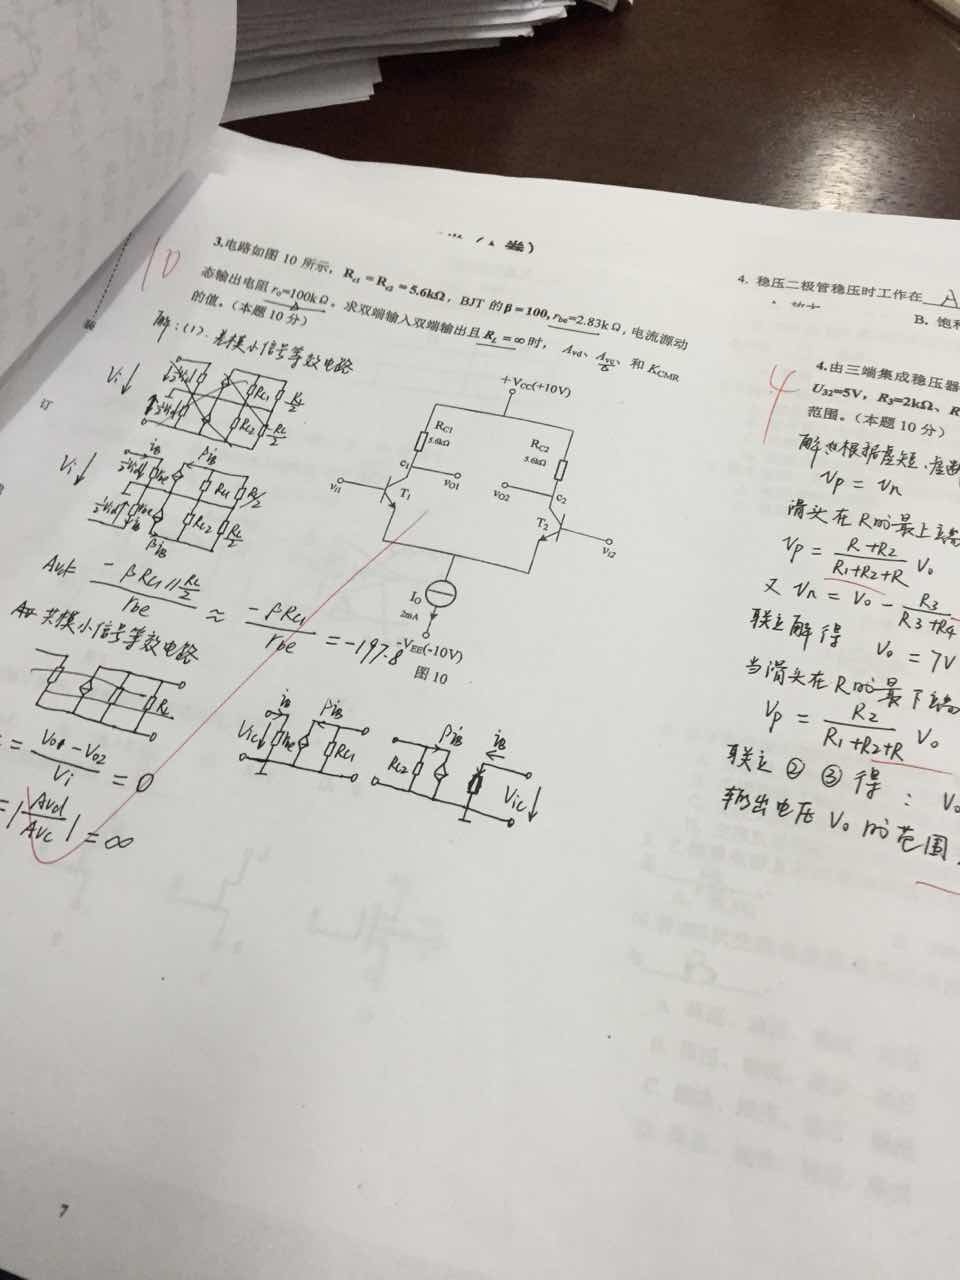 卷)
10
3.电路如图 10 所示，Rc1 = Rc2 = 5.6kΩ，BJT 的 β = 100, rbe=2.83kΩ, 电流源动
态输出电阻 ro=100kΩ。求双端输入双端输出且 RL = ∞ 时， Avd、Avc、和 KCMR
的值。(本题 10 分)
解：(1)、差模小信号等效电路
Vi
RC1
RC2
RL/2
RL/2
Vi
iB
βiB
RC1
RL/2
RC2
RL/2
iB
βiB
Avd
-βRC1//RL/2
rbe
≈
-βRC1
rbe
= -197.8
共模小信号等效电路
RL
= Vo1-Vo2
Vi
= 0
=|Avd
Avc| = ∞
+VCC(+10V)
RC1
5.6kΩ
RC2
5.6kΩ
c1
c2
vi1
T1
vO1
vO2
T2
vi2
IO
2mA
-VEE(-10V)
图 10
iB
βiB
Vic
rbe
RC1
RC2
βiB
iB
Vic
订
7
4. 稳压二极管稳压时工作在 A
B. 饱和
4
4.由三端集成稳压器
U32=5V，R3=2kΩ、R
范围。(本题 10 分)
解 根据虚短、虚断
Vp = Vn
滑头在R的最上端
Vp = R+R2
R1+R2+R
Vo
又 Vn = Vo - R3
R3+R4
联立解得 Vo = 7V
当滑头在R的最下端
Vp = R2
R1+R2+R
Vo
联立 ② ③ 得： Vo
输出电压 Vo 的范围